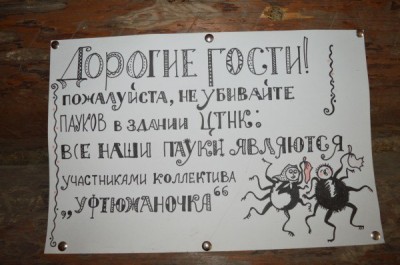 Дорогие гости!
пожалуйста, не убивайте
пауков в здании ЦТНК:
все наши пауки являются
участниками коллектива
„Уфтюжаночка“